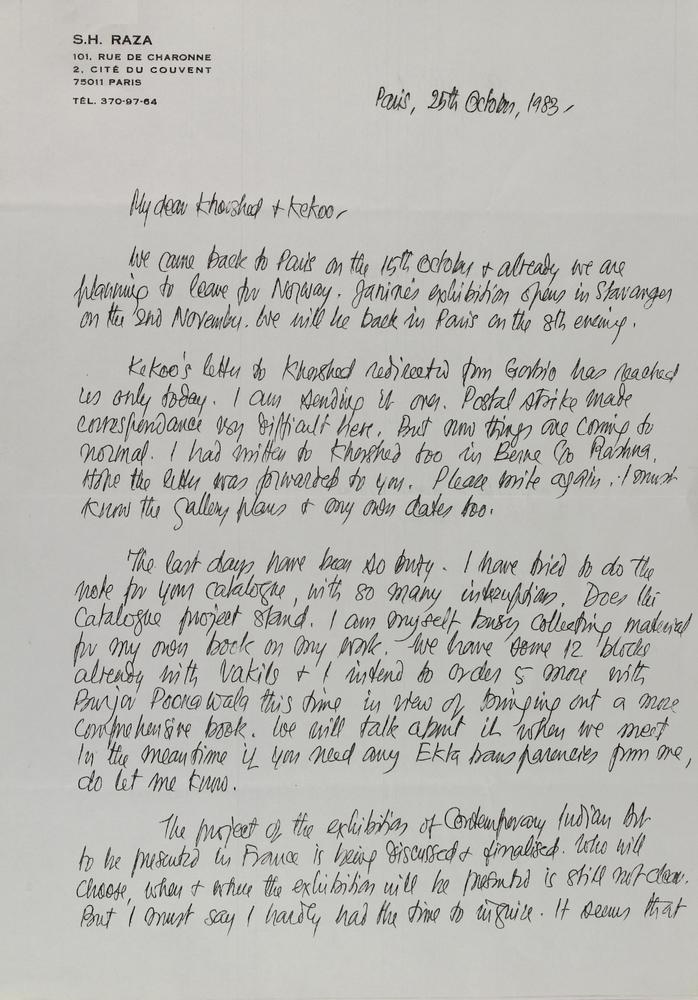 S.H. RAZA
101, RUE DE CHARONNE
2, CITÉ DU COUVENT
75011 PARIS
TÉL. 370-97-64
Paris, 25th October, 1983,
My dear Khorshed & Kekoo,
We came back to Paris on the 15th October & already we are
planning to leave for Norway. Janine's exhibition opens in Stavanger
on the 2nd November. We will be back in Paris on the 8th evening.
Kekoo's letter to Khorshed redirected from Gorbio has reached
us only today. I am sending it over. Postal strike made
correspondance very difficult here. But now things are coming to
normal. I had written to Khorshed too in Berne C/o Rashna.
Hope the letter was forwarded to you. Please write again. I must
know the gallery plans & my own dates too.
The last days have been so busy. I have tried to do the
note for your catalogue, with so many interruptions. Does the
Catalogue project stand. I am myself busy collecting material
for my own book on my work. We have some 12 blocks
already with Vakils & I intend to order 5 more with
Burjor Poonawala this time in view of bringing out a more
comprehensive book. We will talk about it when we meet
In the meantime if you need any Ekta transparencies from me,
do let me know.
The project of the exhibition of Contemporary Indian Art
to be presented in France is being discussed & finalised. Who will
choose, when & where the exhibition will be presented is still not clear.
But I must say I hardly had the time to inquire. It seems that